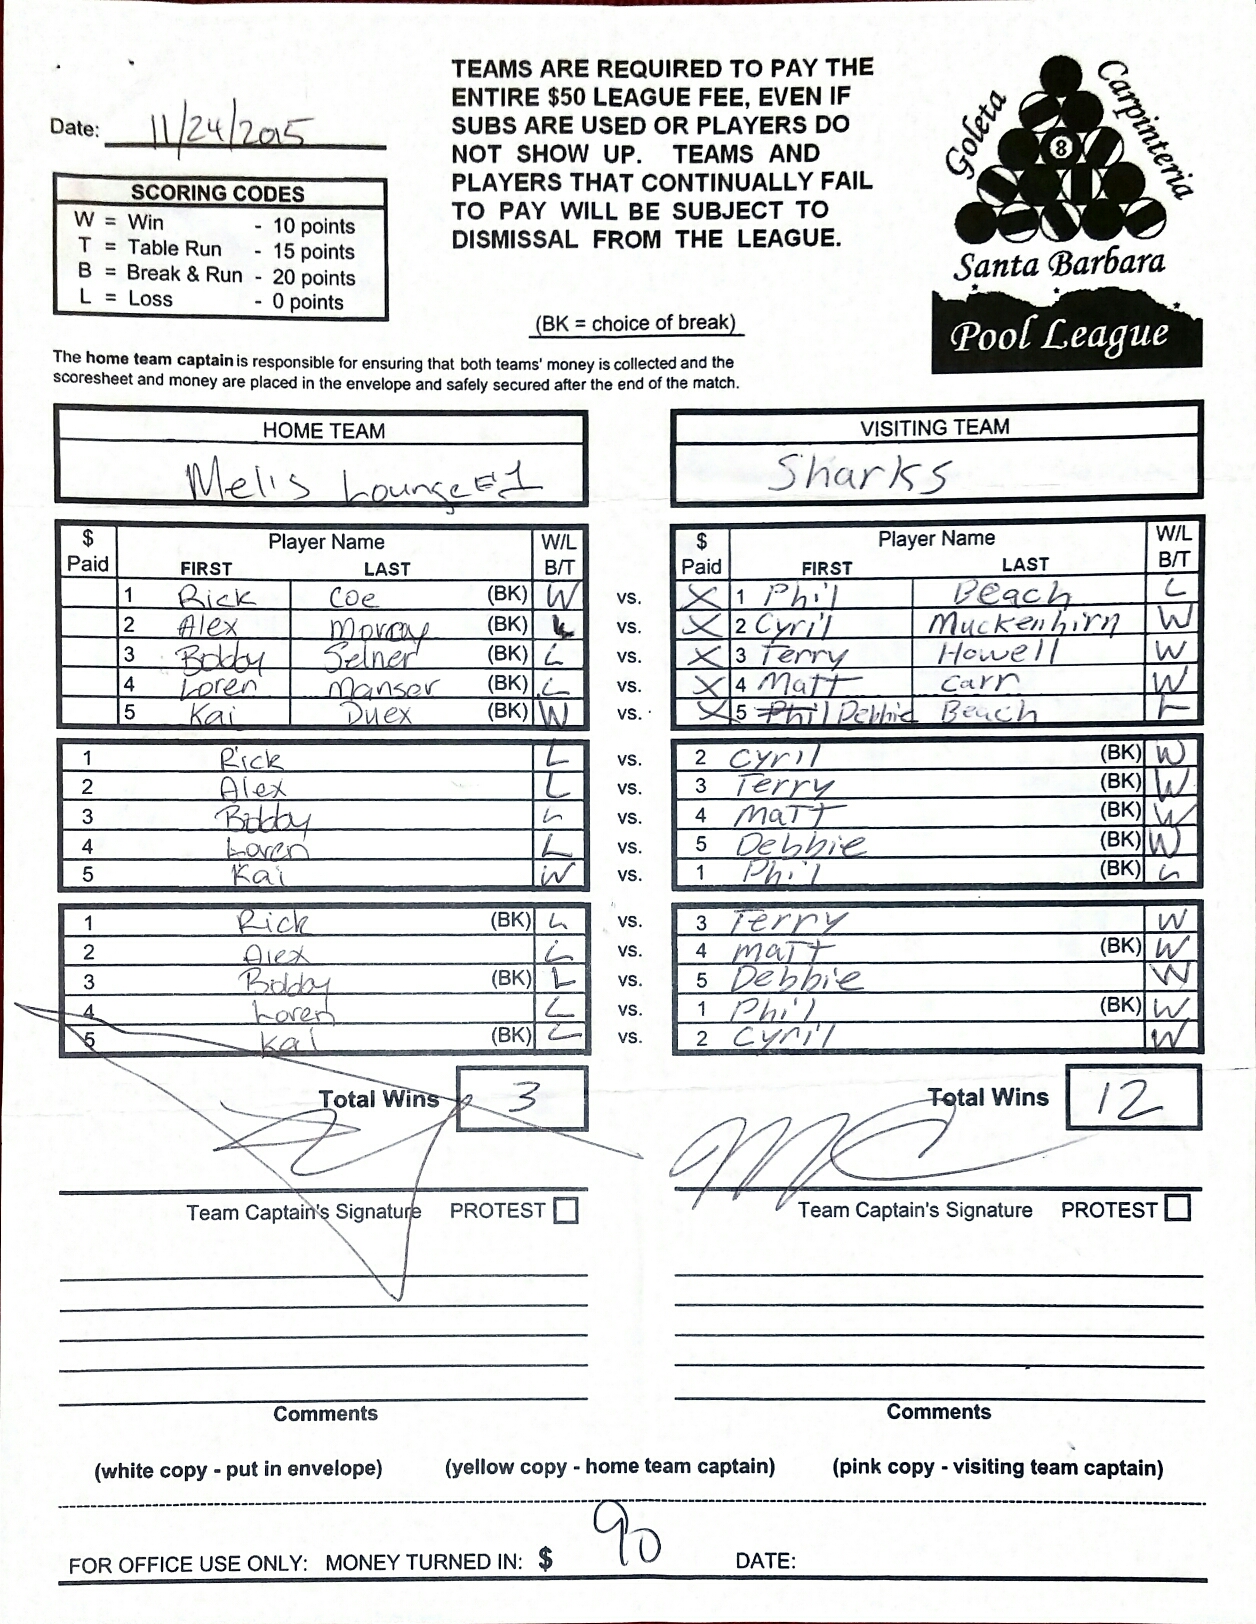 Date: 11/24/2015
SCORING CODES
W = Win - 10 points
T = Table Run - 15 points
B = Break & Run - 20 points
L = Loss - 0 points
TEAMS ARE REQUIRED TO PAY THE
ENTIRE $50 LEAGUE FEE, EVEN IF
SUBS ARE USED OR PLAYERS DO
NOT SHOW UP. TEAMS AND
PLAYERS THAT CONTINUALLY FAIL
TO PAY WILL BE SUBJECT TO
DISMISSAL FROM THE LEAGUE.
(BK = choice of break)
Goleta
Carpinteria
8
Santa Barbara
Pool League
The home team captain is responsible for ensuring that both teams' money is collected and the
scoresheet and money are placed in the envelope and safely secured after the end of the match.
HOME TEAM VISITING TEAM
Mel's Lounge #1 Sharks
$ Paid Player Name FIRST LAST W/L B/T $ Paid Player Name FIRST LAST W/L B/T
1 Rick Coe (BK) W vs. X 1 Phil Beach L
2 Alex (BK) L vs. X 2 Cyril Muckenhirn W
3 Bobby Selner (BK) L vs. X 3 Terry Howell W
4 Loren Manser (BK) L vs. X 4 Matt Carr W
5 Kai Duex (BK) W vs. X 5 Phil Debbie Beach L
1 Rick L vs. 2 Cyril (BK) W
2 Alex L vs. 3 Terry (BK) W
3 Bobby L vs. 4 Matt (BK) W
4 Loren L vs. 5 Debbie (BK) W
5 Kai W vs. 1 Phil (BK) L
1 Rick (BK) L vs. 3 Terry W
2 Alex L vs. 4 Matt (BK) W
3 Bobby (BK) L vs. 5 Debbie W
4 Loren L vs. 1 Phil (BK) W
5 Kai (BK) L vs. 2 Cyril W
Total Wins 3 Total Wins 12
Team Captain's Signature PROTEST Team Captain's Signature PROTEST
Comments Comments
(white copy - put in envelope) (yellow copy - home team captain) (pink copy - visiting team captain)
FOR OFFICE USE ONLY: MONEY TURNED IN: $ 90 DATE: